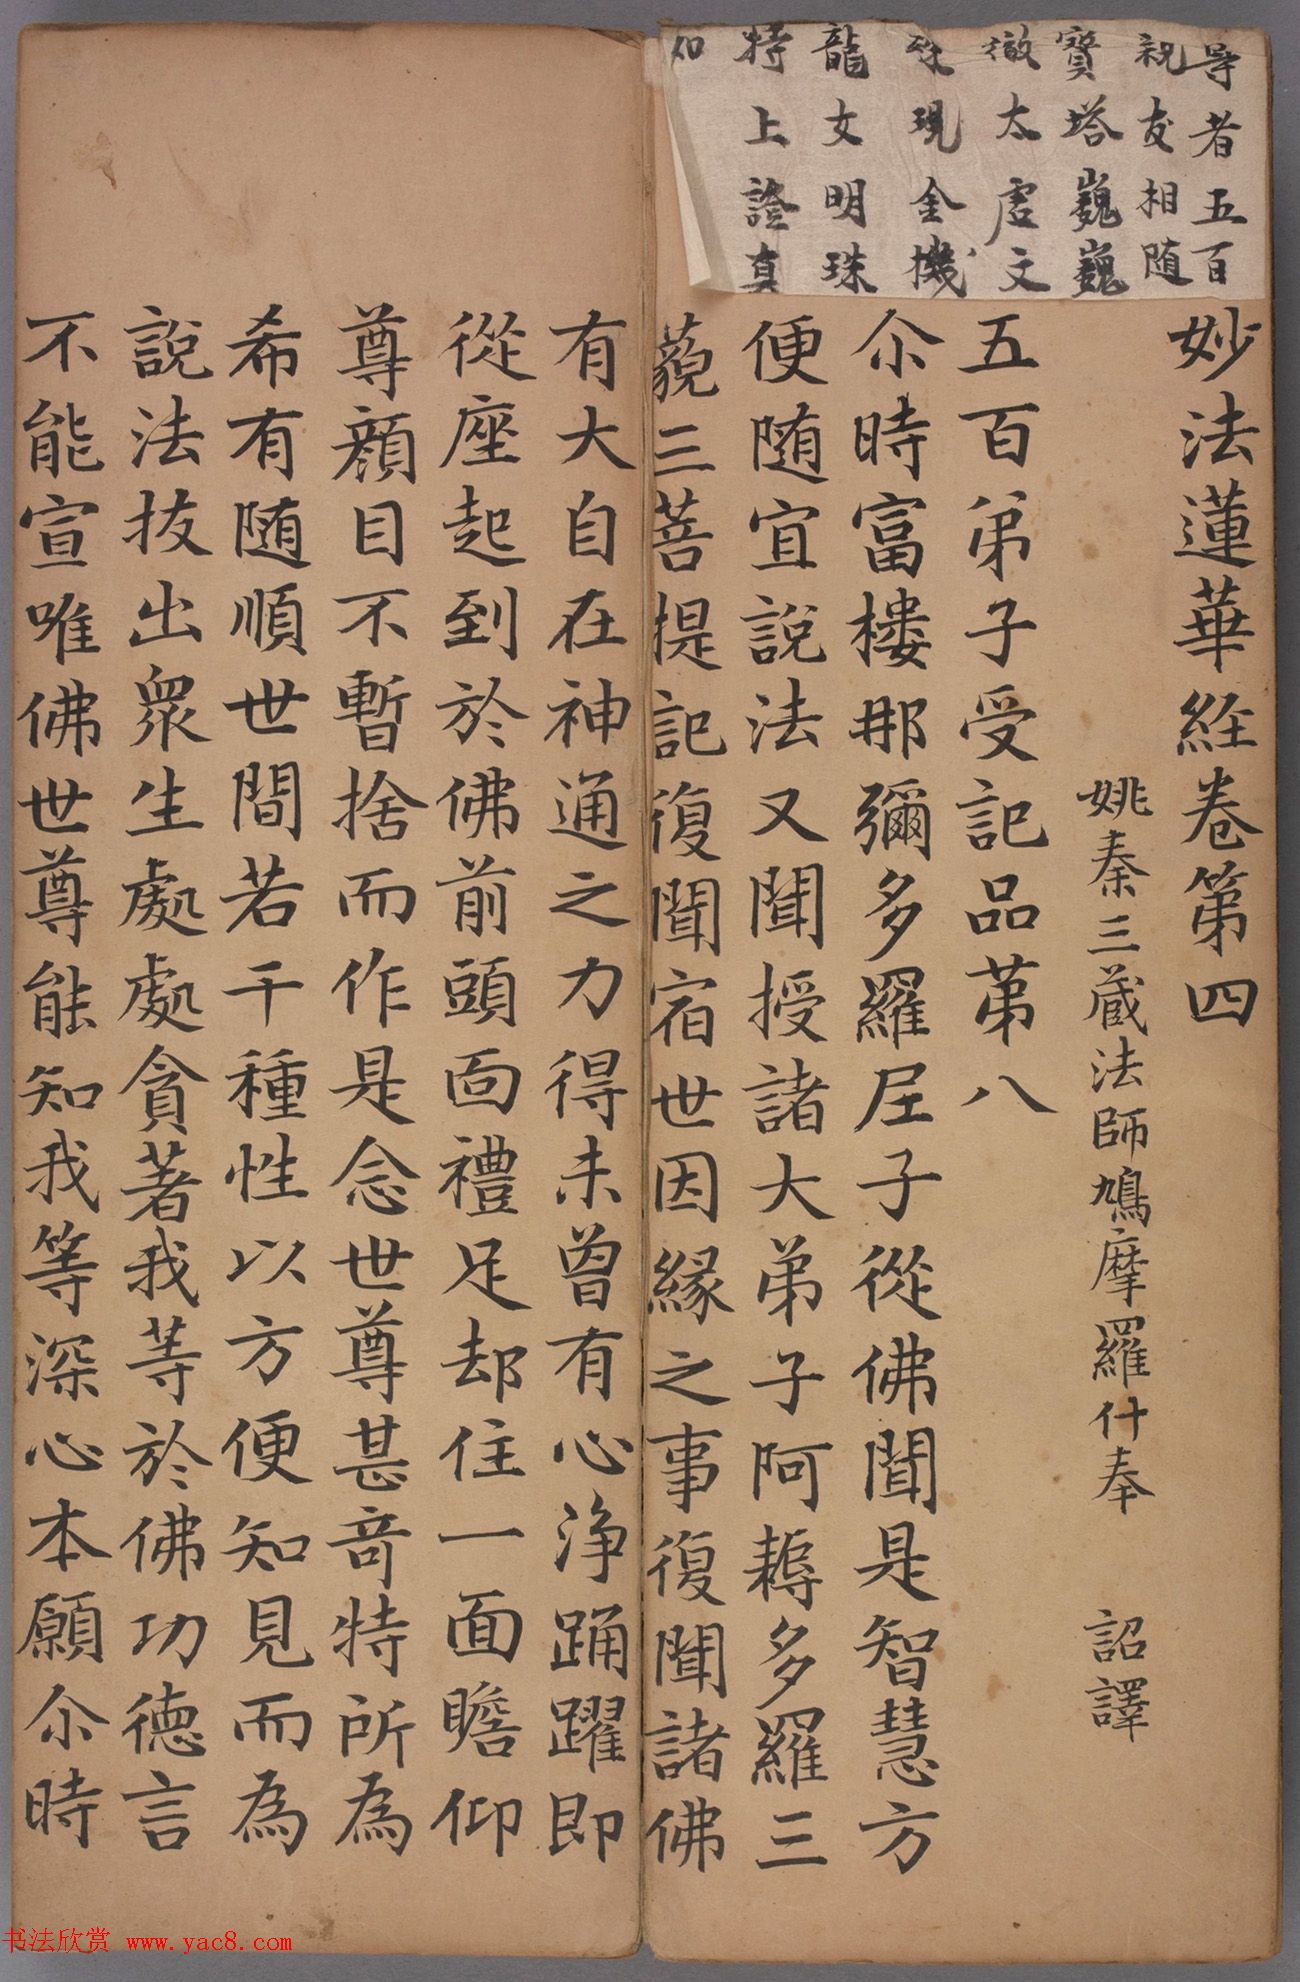 尊者五百
親友相随
寳塔巍巍
徹太虛文
殊現金機
龍女明珠
特上證真
如
妙法蓮華經卷第四
姚秦三藏法師鳩摩羅什奉 詔譯
五百弟子受記品苐八
尒時富樓那彌多羅尼子從佛聞是智慧方
便随宜說法又聞授諸大弟子阿耨多羅三
藐三菩提記復聞宿世因緣之事復聞諸佛
有大自在神通之力得未曾有心淨踊躍即
從座起到於佛前頭面禮足却住一面瞻仰
尊顔目不暫捨而作是念世尊甚竒特所為
希有随順世間若干種性以方便知見而為
說法拔出眾生處處貪著我等於佛功德言
不能宣唯佛世尊能知我等深心本願尒時
书法欣赏 www.yac8.com